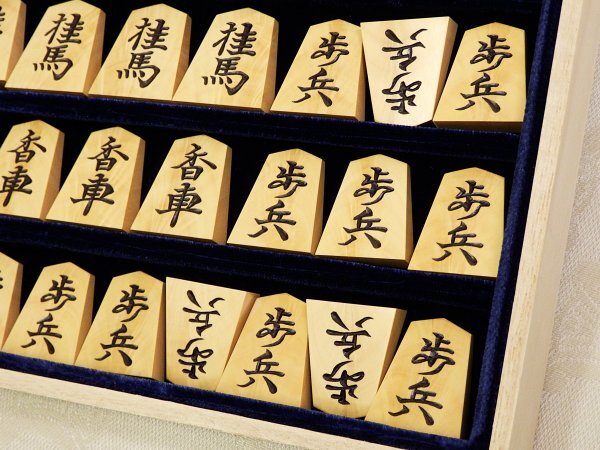 桂馬 桂馬 桂馬 歩兵 歩兵 歩兵
香車 香車 香車 歩兵 歩兵 歩兵
歩兵 歩兵 歩兵 歩兵 歩兵 歩兵